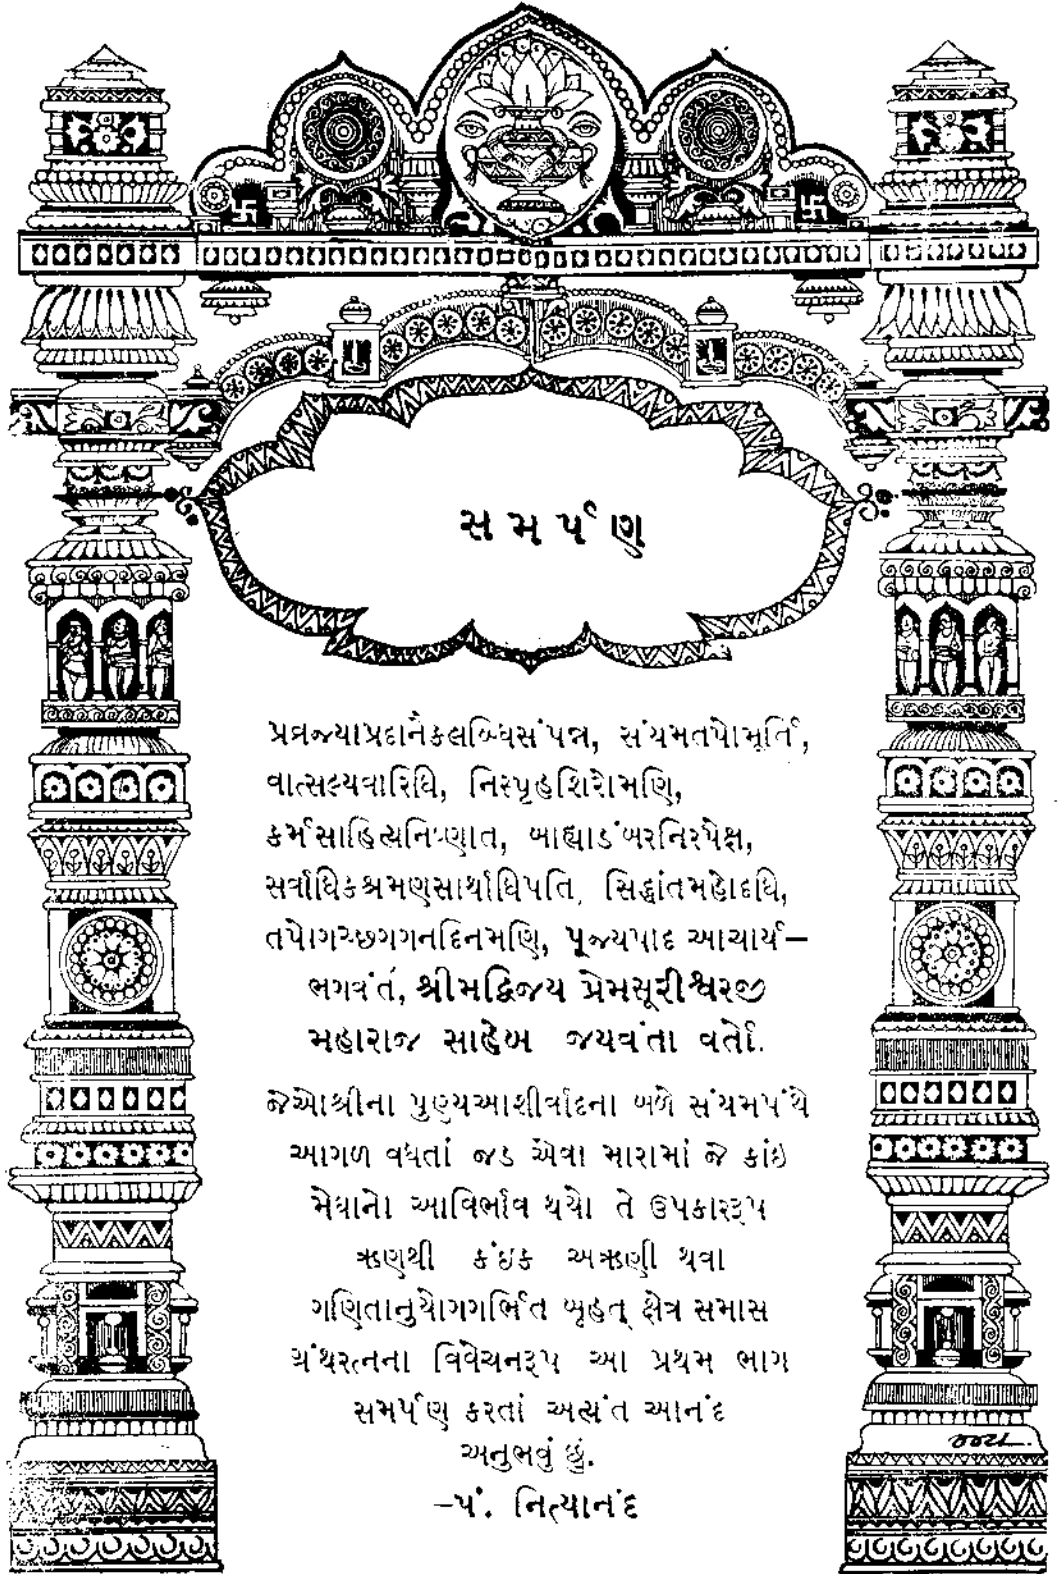 સમર્પણ
પ્રવ્રજ્યાપ્રદાનૈકલબ્ધિસંપન્ન, સંયમતપોમૂર્તિ,
વાત્સલ્યવારિધિ, નિસ્પૃહશિરોમણિ,
કર્મસાહિત્યનિષ્ણાત, બાહ્યાડંબરનિરપેક્ષ,
સર્વાધિકશ્રમણસાર્થાધિપતિ, સિદ્ધાંતમહોદધિ,
તપોગચ્છગગનદિનમણિ, પૂજ્યપાદ આચાર્ય–
ભગવંત, શ્રીમદ્વિજય પ્રેમસૂરીશ્વરજી
મહારાજ સાહેબ જયવંતા વર્તો.
જેઓશ્રીના પુણ્યઆશીર્વાદના બળે સંયમપંથે
આગળ વધતાં જડ એવા મારામાં જે કાંઇ
મેધાનો આવિર્ભાવ થયો તે ઉપકારરૂપ
ઋણથી કંઇક અઋણી થવા
ગણિતાનુયોગગર્ભિત બૃહત્ ક્ષેત્ર સમાસ
ગ્રંથરત્નના વિવેચનરૂપ આ પ્રથમ ભાગ
સમર્પણ કરતાં અત્યંત આનંદ
અનુભવું છું.
–પં. નિત્યાનંદ